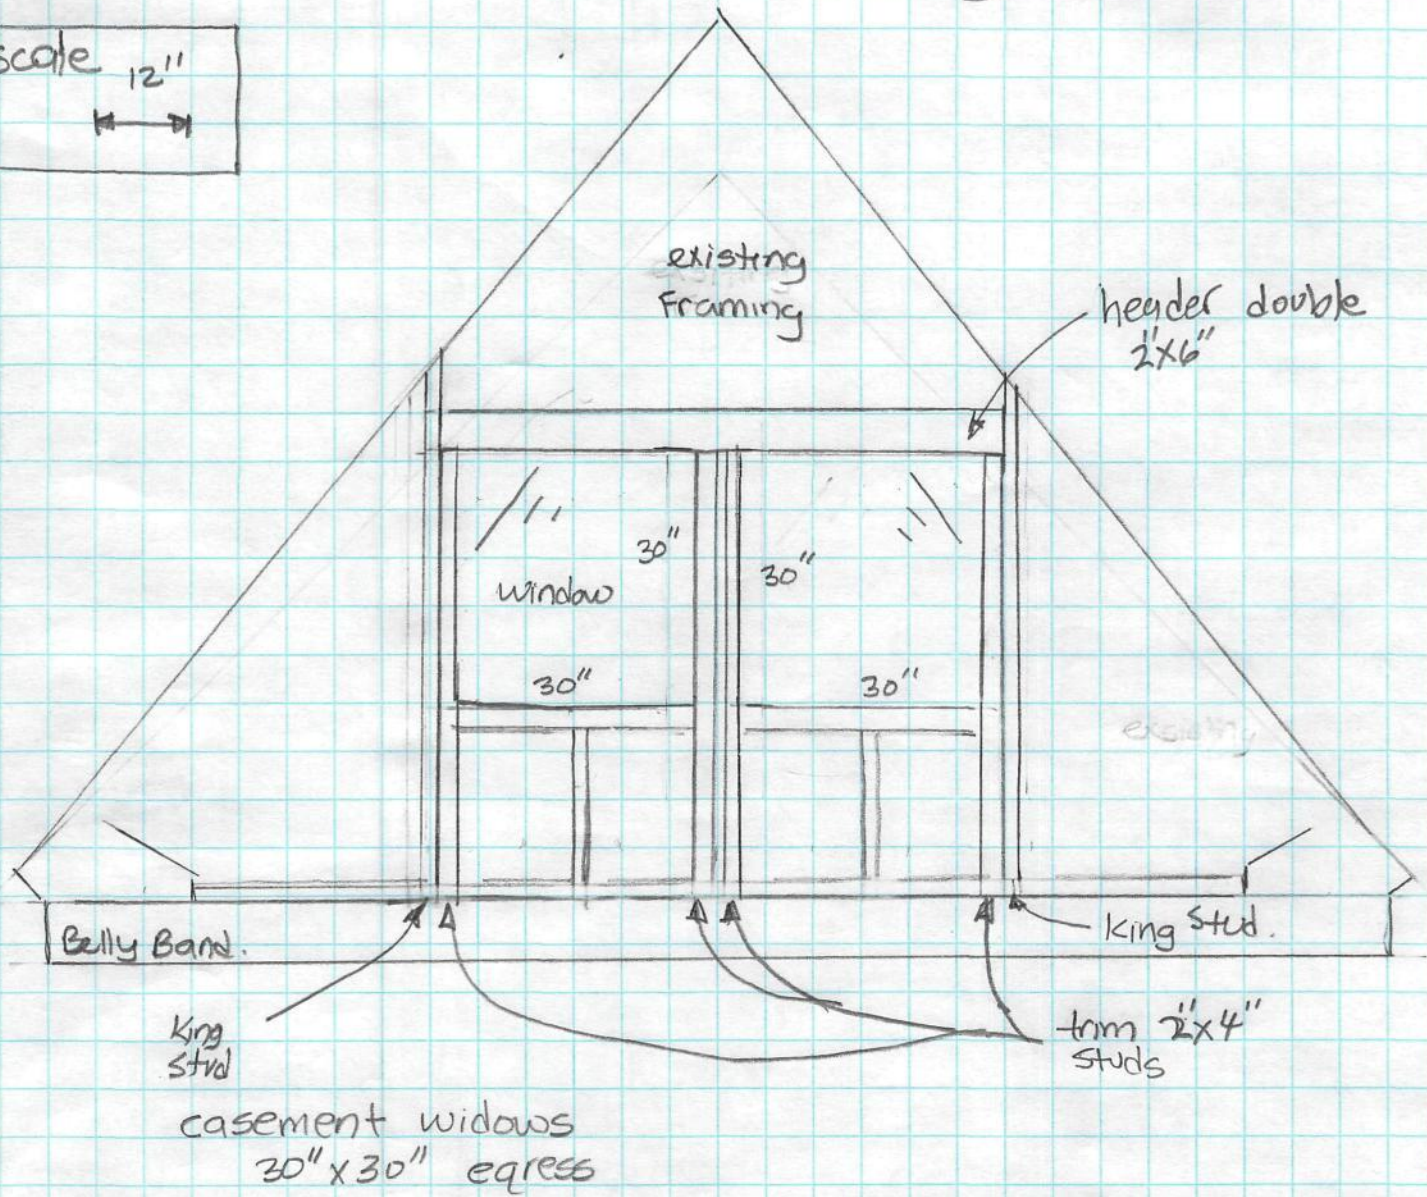 scale
12"
existing
Framing
header double
2"x6"
30"
30"
window
30"
30"
existing
Belly Band.
King Stud.
King
stud
trim 2"x4"
studs
casement widows
30"x30" egress